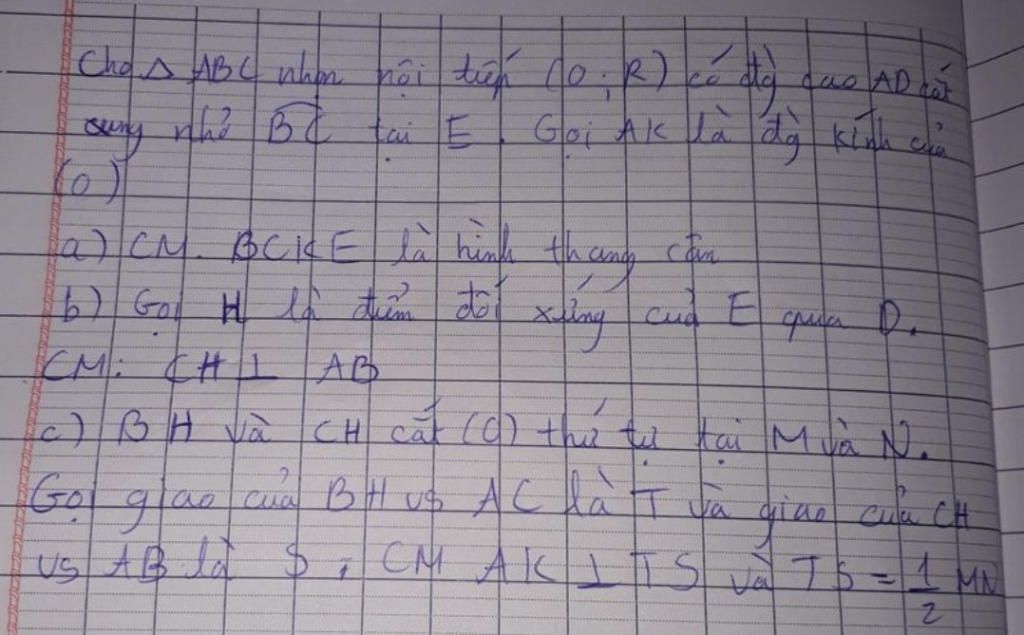 Cho △ ABC nhọn nội tiếp (O; R) có đg cao AD cắt
cung nhỏ BC tại E. Gọi AK là đg kính của
(O)
a) CM. BCKE là hình thang cân
b) Gọi H là điểm đối xứng của E qua D.
CM: CH ⊥ AB
c) BH và CH cắt (O) thứ tự tại M và N.
Gọi giao của BH vs AC là T và giao của CH
vs AB là S, CM AK ⊥ TS và TS = 1/2 MN